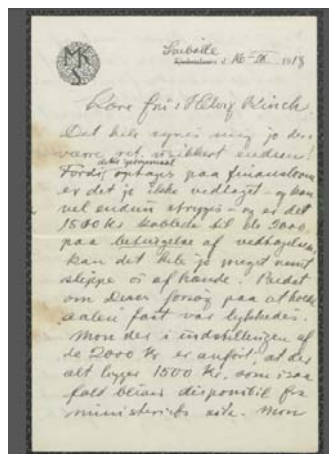 MKS
Snibølle
Kjøbenhavn d. 16-IX 1918
Kære fru Helvig Kinch.
Det hele synes mig jo des-
værre ret usikkert endnu!
Fordi dette
optages paa finansloven
er det jo ikke vedtaget - og kan
vel endnu stryges - og er det
1500 Kr koblede til de 2000
paa betingelse af vedtagelsen,
kan det hele jo meget nemt
slippe os af hænde. Bedst
om Deres forsøg paa at holde
fast var lykkedes.
Mon der i indstillingen af
de 2000 Kr er anført, at der
alt ligger 1500 Kr, som i saa
fald bliver disponibel fra
ministeriets side. Mon